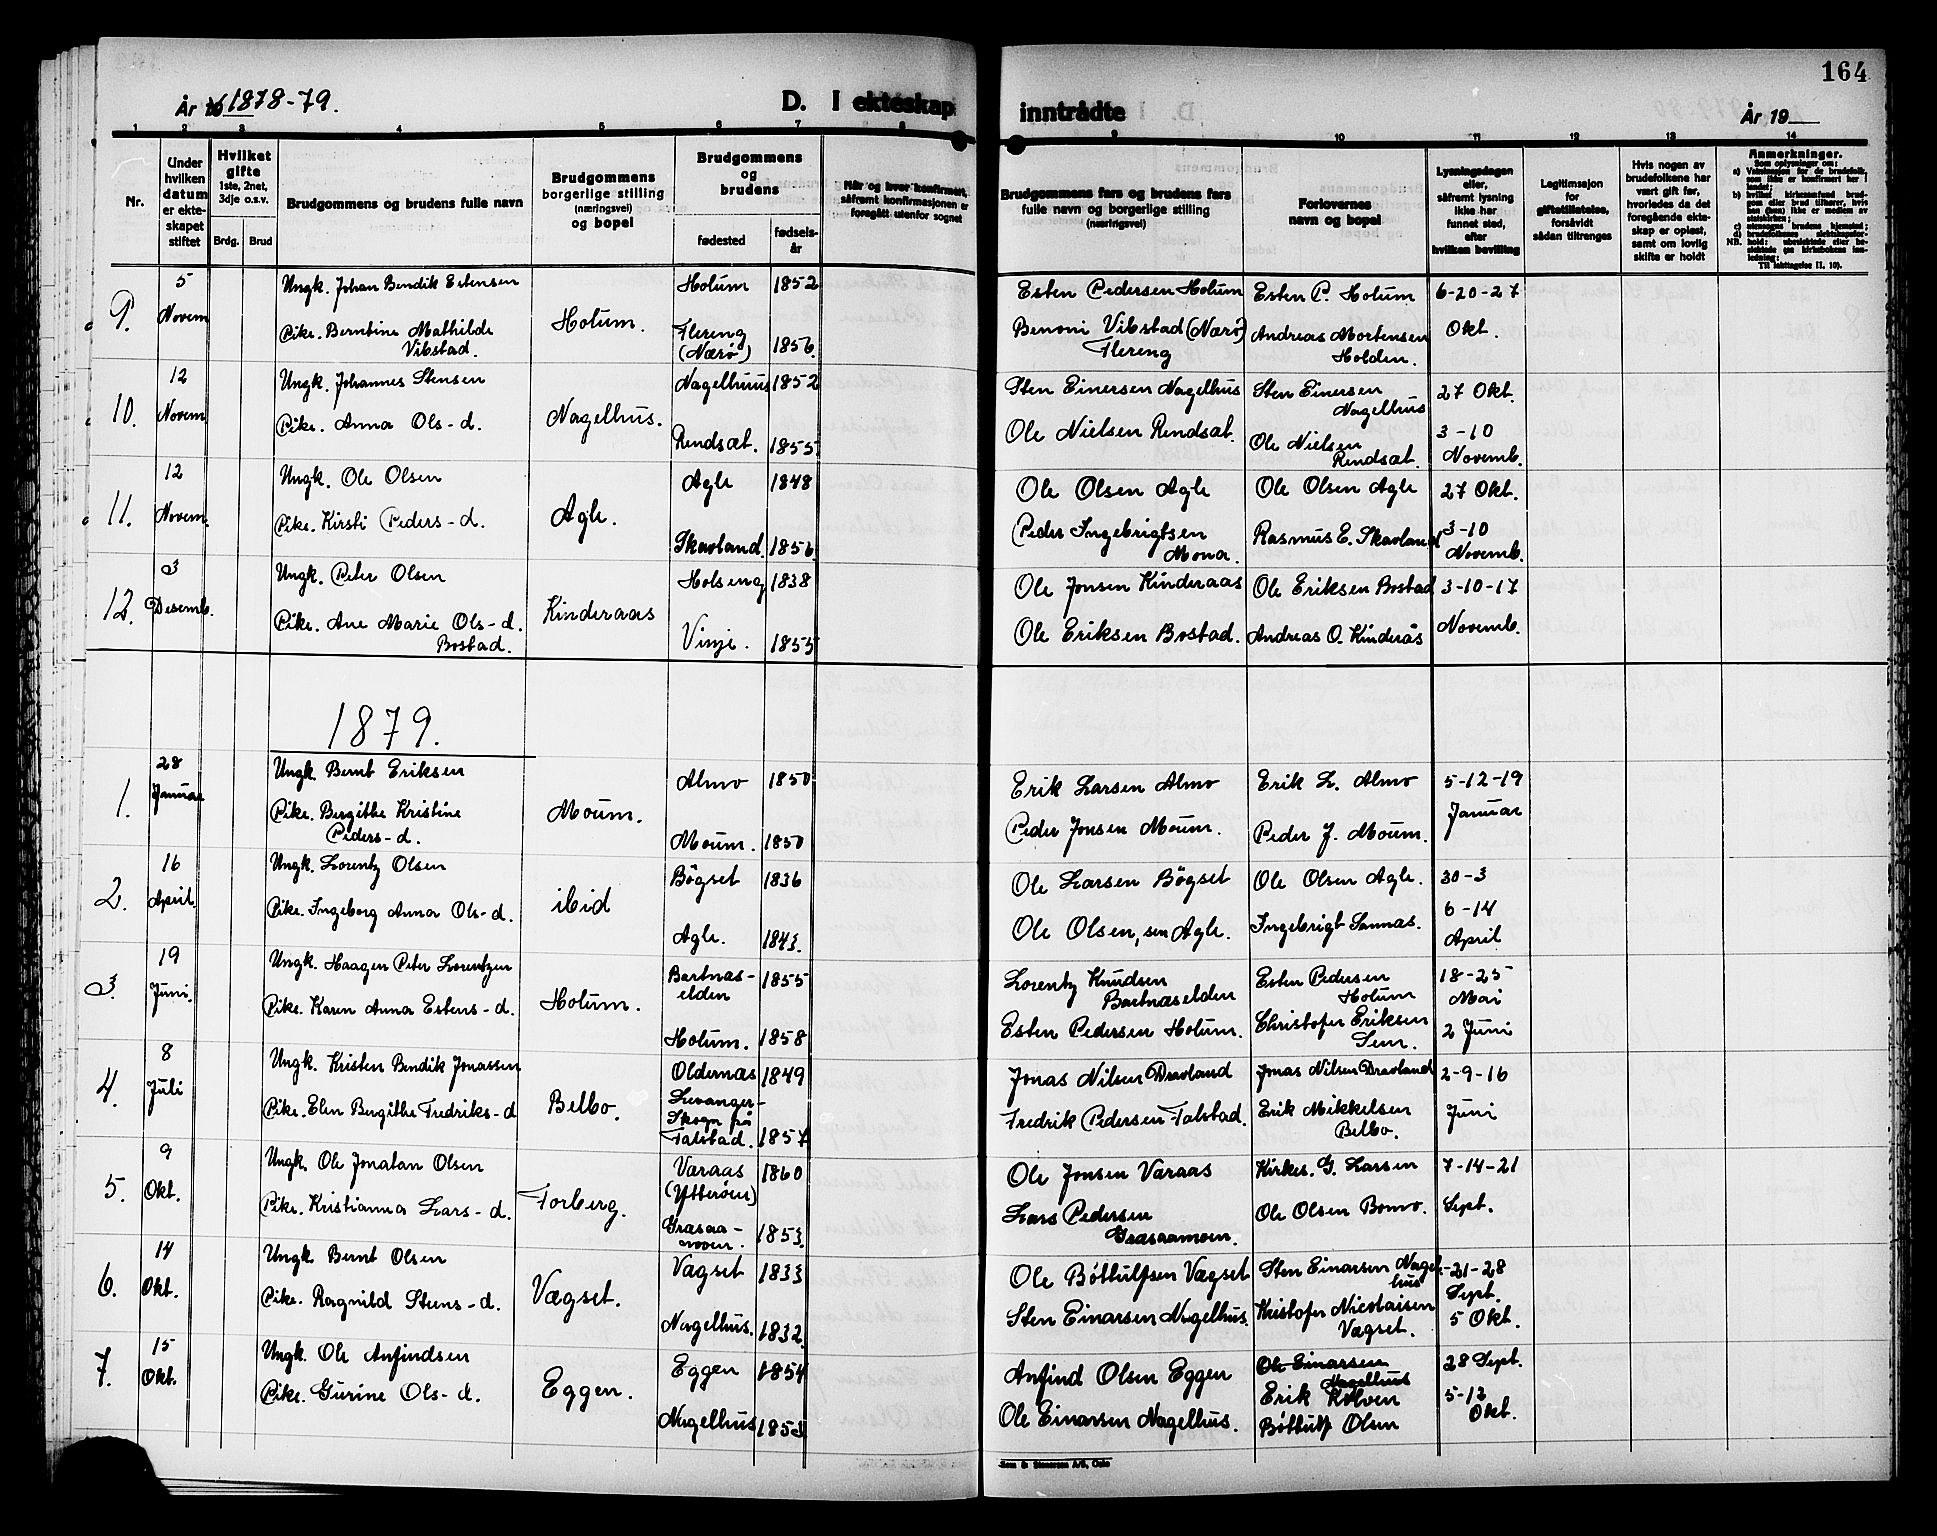 164
År 1878-79.
D. I ekteskap inntrådte
År 19
1 2 3 4 5 6 7 8 9 10 11 12 13 14
Nr.
Under hvilken datum er ekte-skapet stiftet
Hvilket gifte
1ste, 2net, 3dje o.s.v.
Brdg. Brud
Brudgommens og brudens fulle navn
Brudgommens borgerlige stilling (næringsvei) og bopel
Brudgommens og brudens
fødested
fødsels-år
Når og hvor konfirmert, såfremt konfirmasjonen er foregått utenfor sognet
Brudgommens fars og brudens fars fulle navn og borgerlige stilling (næringsvei)
Forlovernes navn og bopel
Lysningsdagen eller, såfremt lysning ikke har funnet sted, efter hvilken bevilling
Legitimasjon for giftetillatelse, forsåvidt sådan tiltrenges
Hvis nogen av brudefolkene har vært gift før, hvorledes da det foregående ekte-skap er opløst, samt om lovlig skifte er holdt
Anmerkninger.
9. 5 Novem
Ungk. Johan Bendik Estensen
Pike. Berntine Mathilde Vibstad.
Holum.
Holum 1852
Flereng (Nærø) 1856.
Esten Pedersen Holum
Benoni Vibstad (Nærø) Flereng
Esten P. Holum
Andreas Mortensen Holden.
6-20-27 Okt.
10. 12 Novem
Ungk. Johannes Stensen
Pike. Anna Ols-d.
Nagelhus.
Nagelhuus 1852
Rendsæt. 1855
Sten Einersen Nagelhus
Ole Nielsen Rendsæt.
Sten Einersen Nagelhus
Ole Nielsen Rendsæt.
27 Okt.
3-10 Novemb.
11. 12 Novem.
Ungk. Ole Olsen
Pike. Kirsti Peders-d.
Agle.
Agle 1848
Skavland. 1856
Ole Olsen Agle
Peder Ingebrigtsen Mona.
Ole Olsen Agle
Rasmus E. Skavland
27 Okt.
3-10 Novemb.
12. 3 Desemb.
Ungk. Peter Olsen
Pike. Ane Marie Ols-d. Bostad.
Kinderaas
Holseng 1838
Vinje. 1855
Ole Jonsen Kinderaas
Ole Eriksen Bostad.
Ole Eriksen Bostad
Andreas O. Kinderås
3-10-17 Novemb.
1879.
1. 28 Januar
Ungk. Bernt Eriksen
Pike. Bergithe Kristine Peders-d.
Moum.
Almo 1850
Moum. 1850
Erik Larsen Almo
Peder Jonsen Moum.
Erik L. Almo
Peder J. Moum.
5-12-19 Januar
2. 16 April.
Ungk. Lorentz Olsen
Pike. Ingeborg Anna Ols-d.
ibid
Bögset 1836
Agle. 1843.
Ole Larsen Bögset
Ole Olsen, sen Agle.
Ole Olsen Agle.
Ingebrigt Sannas.
30-3
6-14 April
3. 19 Juni.
Ungk. Haagen Peter Lorentzen
Pike. Karen Anna Estens-d.
Holum.
Bartnas-elden 1855
Holum. 1858
Lorentz Knudsen Bartnaselden
Esten Pedersen Holum.
Esten Pedersen Holum
Christofer Eriksen Sem.
18-25 Mai
2 Juni
4. 8 Juli
Ungk. Kristen Bendik Jonassen
Pike. Elen Bergithe Fredriks-d
Belbo.
Oldernas 1849
Levanger-Skogn på Falstad. 1857
Jonas Nilsen Dravland
Fredrik Pedersen Falstad.
Jonas Nilsen Dravland
Erik Mikkelsen Belbo.
2-9-16 Juni
5. 9 Okt.
Ungk. Ole Jonatan Olsen
Pike. Kristianna Lars-d.
Forberg.
Varaas (Ytterøen) 1860
Græsaa-moen. 1853.
Ole Jonsen Varaas
Lars Pedersen Græsaamoen.
Kirkes. G. Larsen
Ole Olsen Bomo.
7-14-21 Sept.
6. 14 Okt.
Ungk. Bernt Olsen
Pike. Ragnild Stens-d.
Vægset.
Vægset 1833
Nagelhus. 1832.
Ole Böttulfsen Vægset
Sten Einarsen Nagelhus.
Sten Einarsen Nagelhus
Kristofer Nicolaisen Vægset.
-21-28 Sept.
5 Okt.
7. 15 Okt.
Ungk. Ole Anfindsen
Pike. Gurine Ols-d.
Eggen.
Eggen 1854
Nagelhus 1853
Anfind Olsen Eggen
Ole Einarsen Nagelhus.
Ole Einarsen Nagelhus
Erik Kølven
Böttulf Olsen
28 Sept.
5-12 Okt.